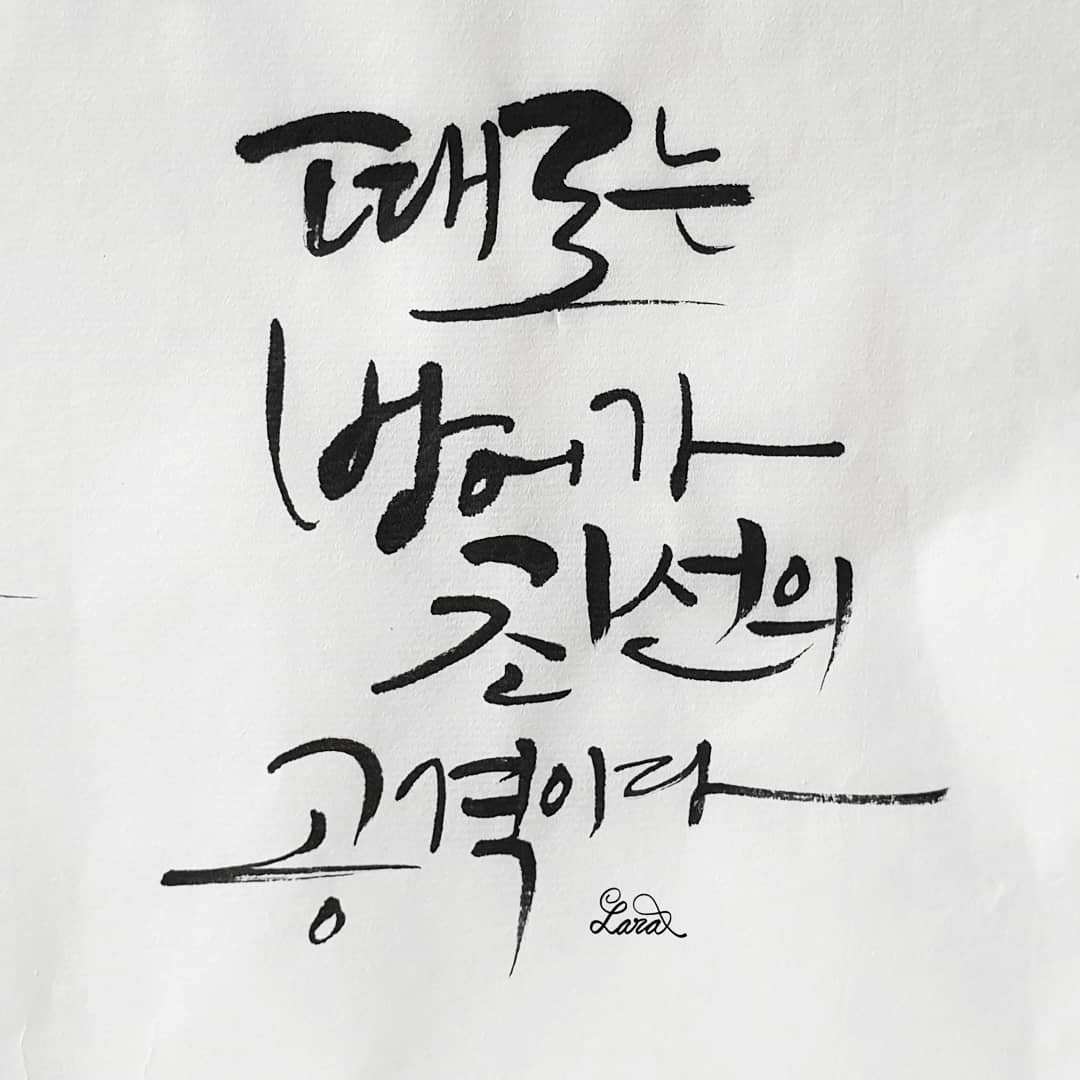 때로는
방어가
최선의
공격이다
Lara